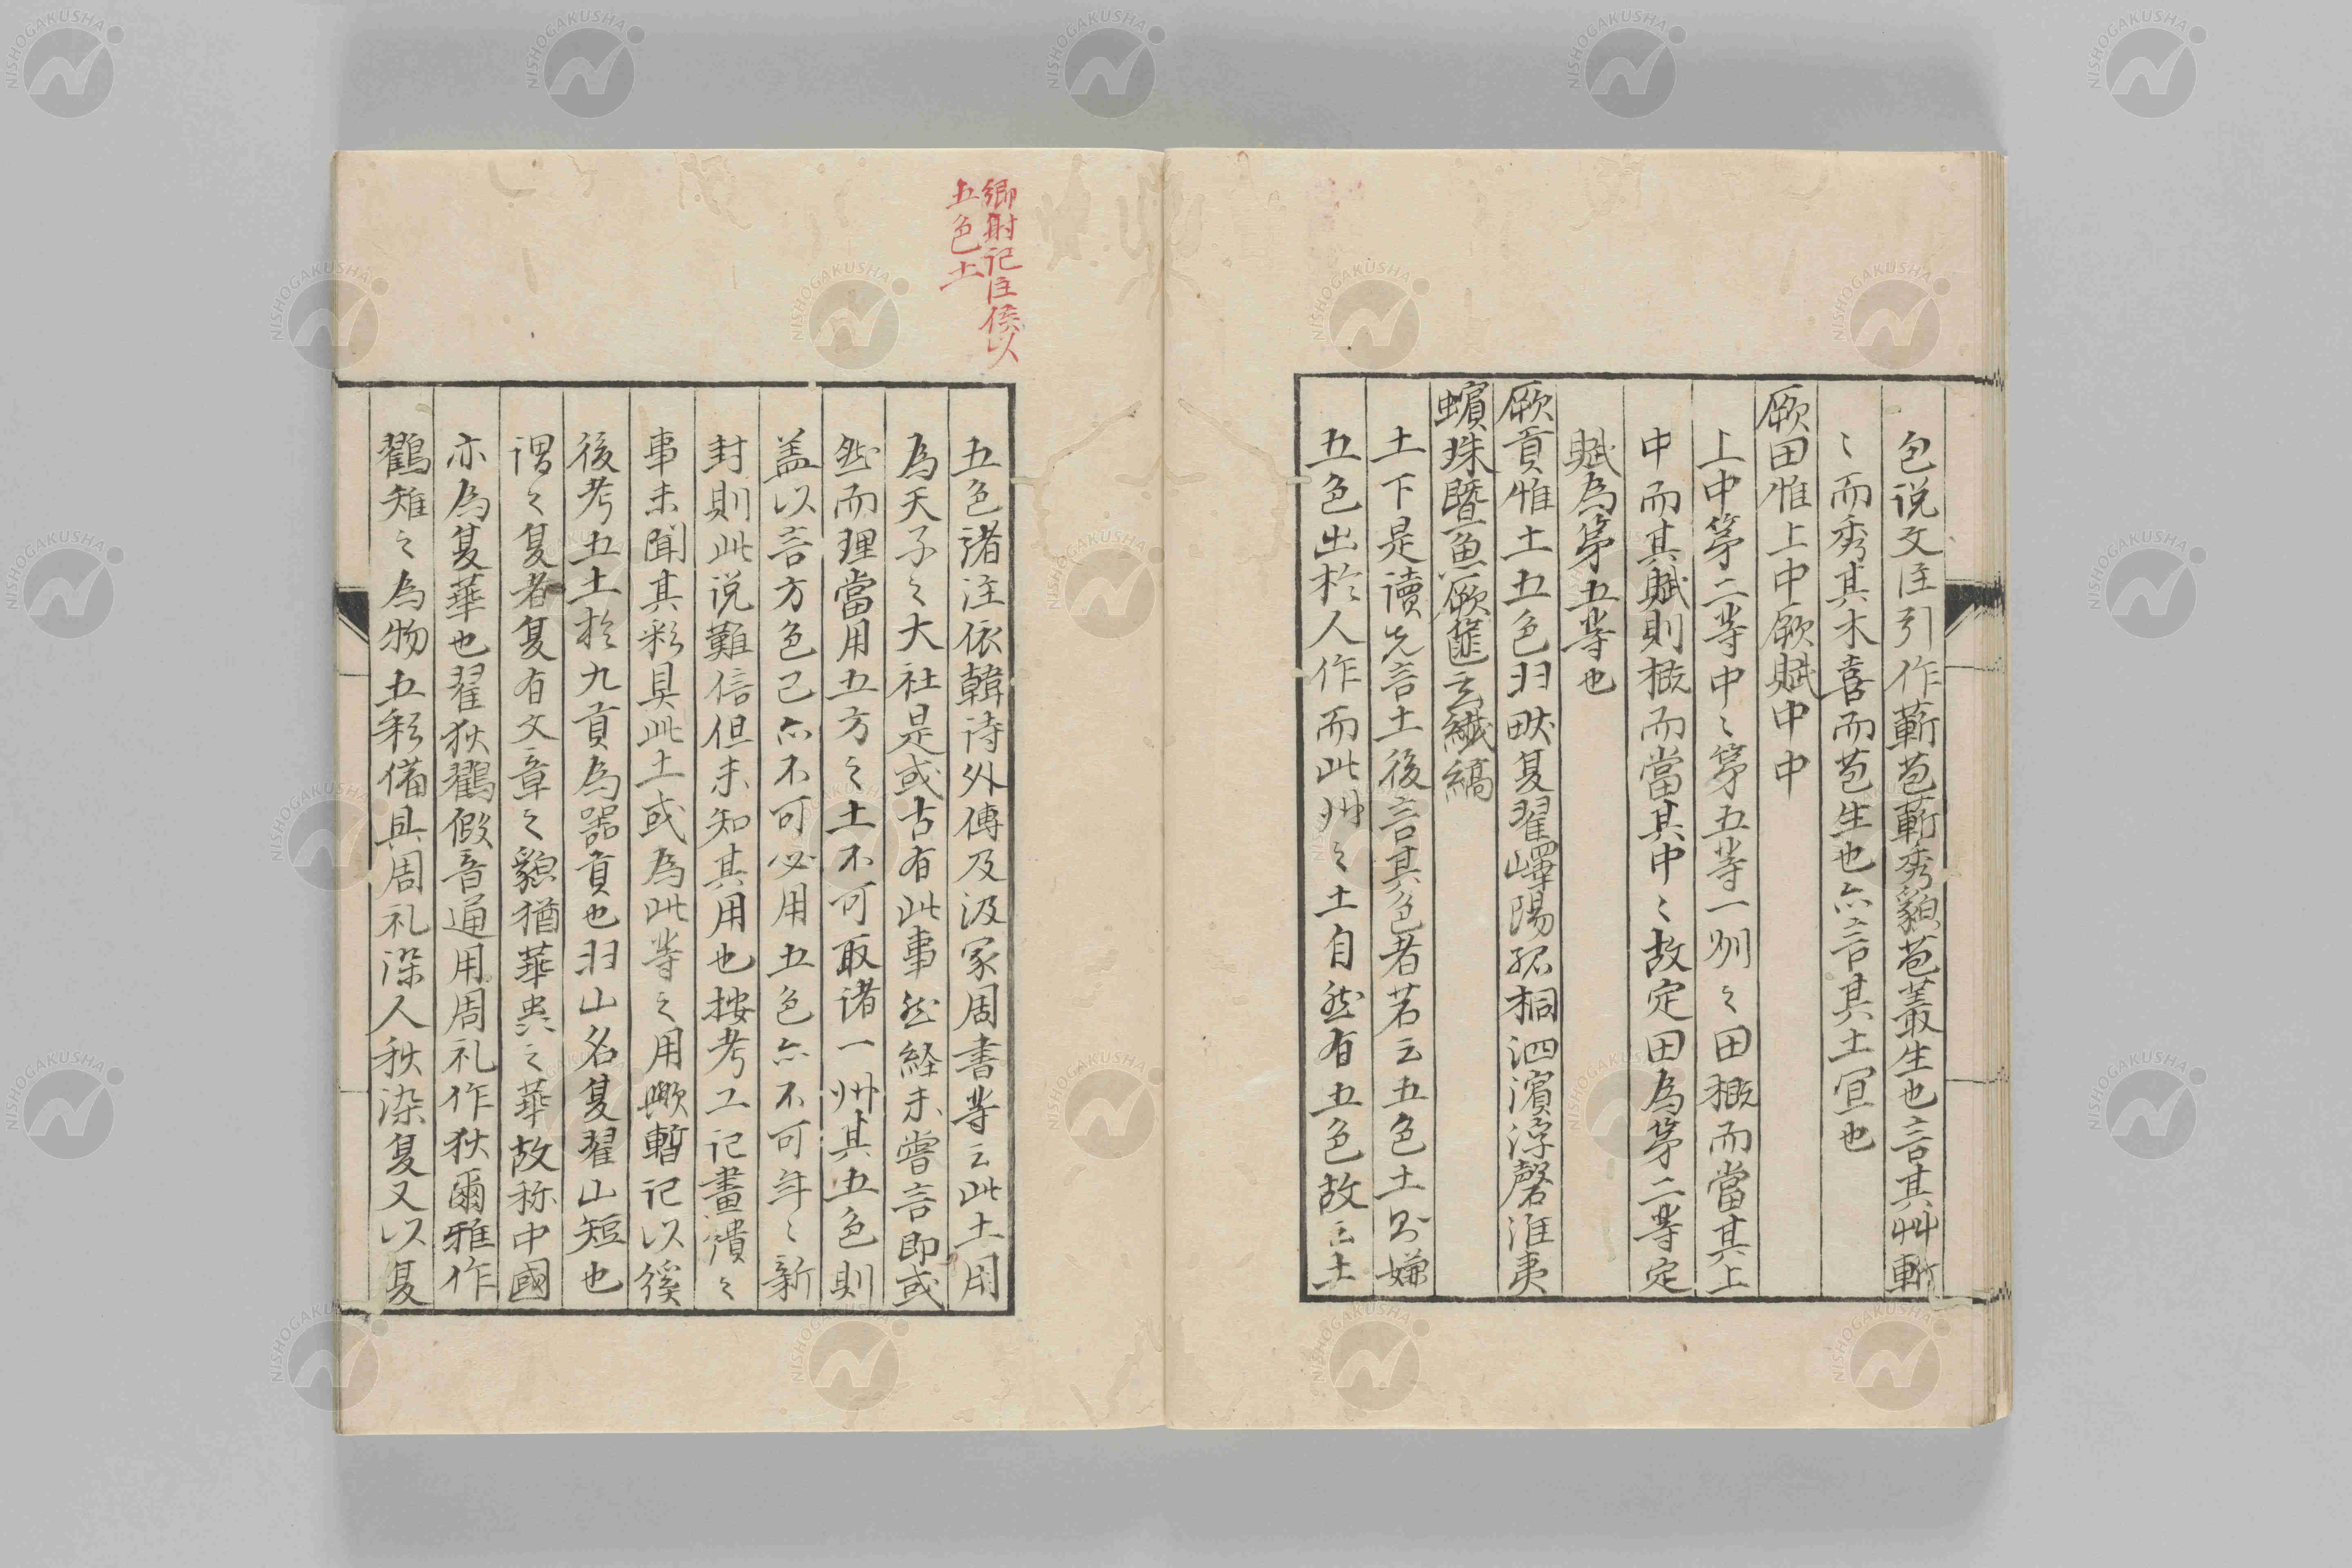 包説文注引作蔪苞蔪秀貌苞叢生也言其艸蔪
〻而秀其木喜而苞生也亦言其土宜也
厥田惟上中厥賦中中
上中第二等中〻第五等一州之田概而當其上
中而其賦則概而當其中〻故定田為第二等定
賦為第五等也
厥貢惟土五色羽畎夏翟嶧陽孤桐泗濱浮磬淮夷
蠙珠暨魚厥篚玄纖縞
土下是讀先言土後言其色者若云五色土則嫌
五色出於人作而此州之土自然有五色故云土
鄉射記注侯以
五色土
五色諸注依韓诗外傳及汲冢周書等云此土用
為天子之大社是或古有此事然経未嘗言即或
然而理當用五方之土不可取诸一州其五色則
盖以言方色己亦不可必用五色亦不可年〻新
封則此説難信但未知其用也按考工记畫繢之
事未聞其彩具此土或為此等之用歟暫记以徯
後考五土於九貢為器貢也羽山名夏翟山短也
谓之夏者夏有文章之貌猶華蟲之華故称中國
亦為夏華也翟狄鸐假音通用周礼作狄爾雅作
鸐雉之為物五彩備具周礼染人秋染夏又以夏